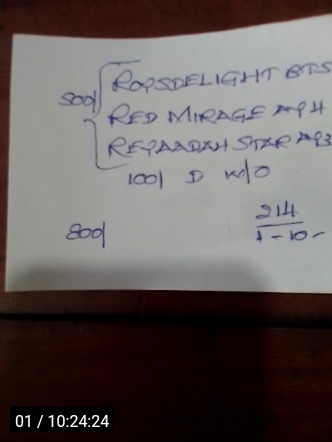 500/ ROPSDELIGHT BTS
RED MIRAGE AP4
REYAADAH STAR AP3
100/ D W/O
800/
214
1-10-
01 / 10:24:24